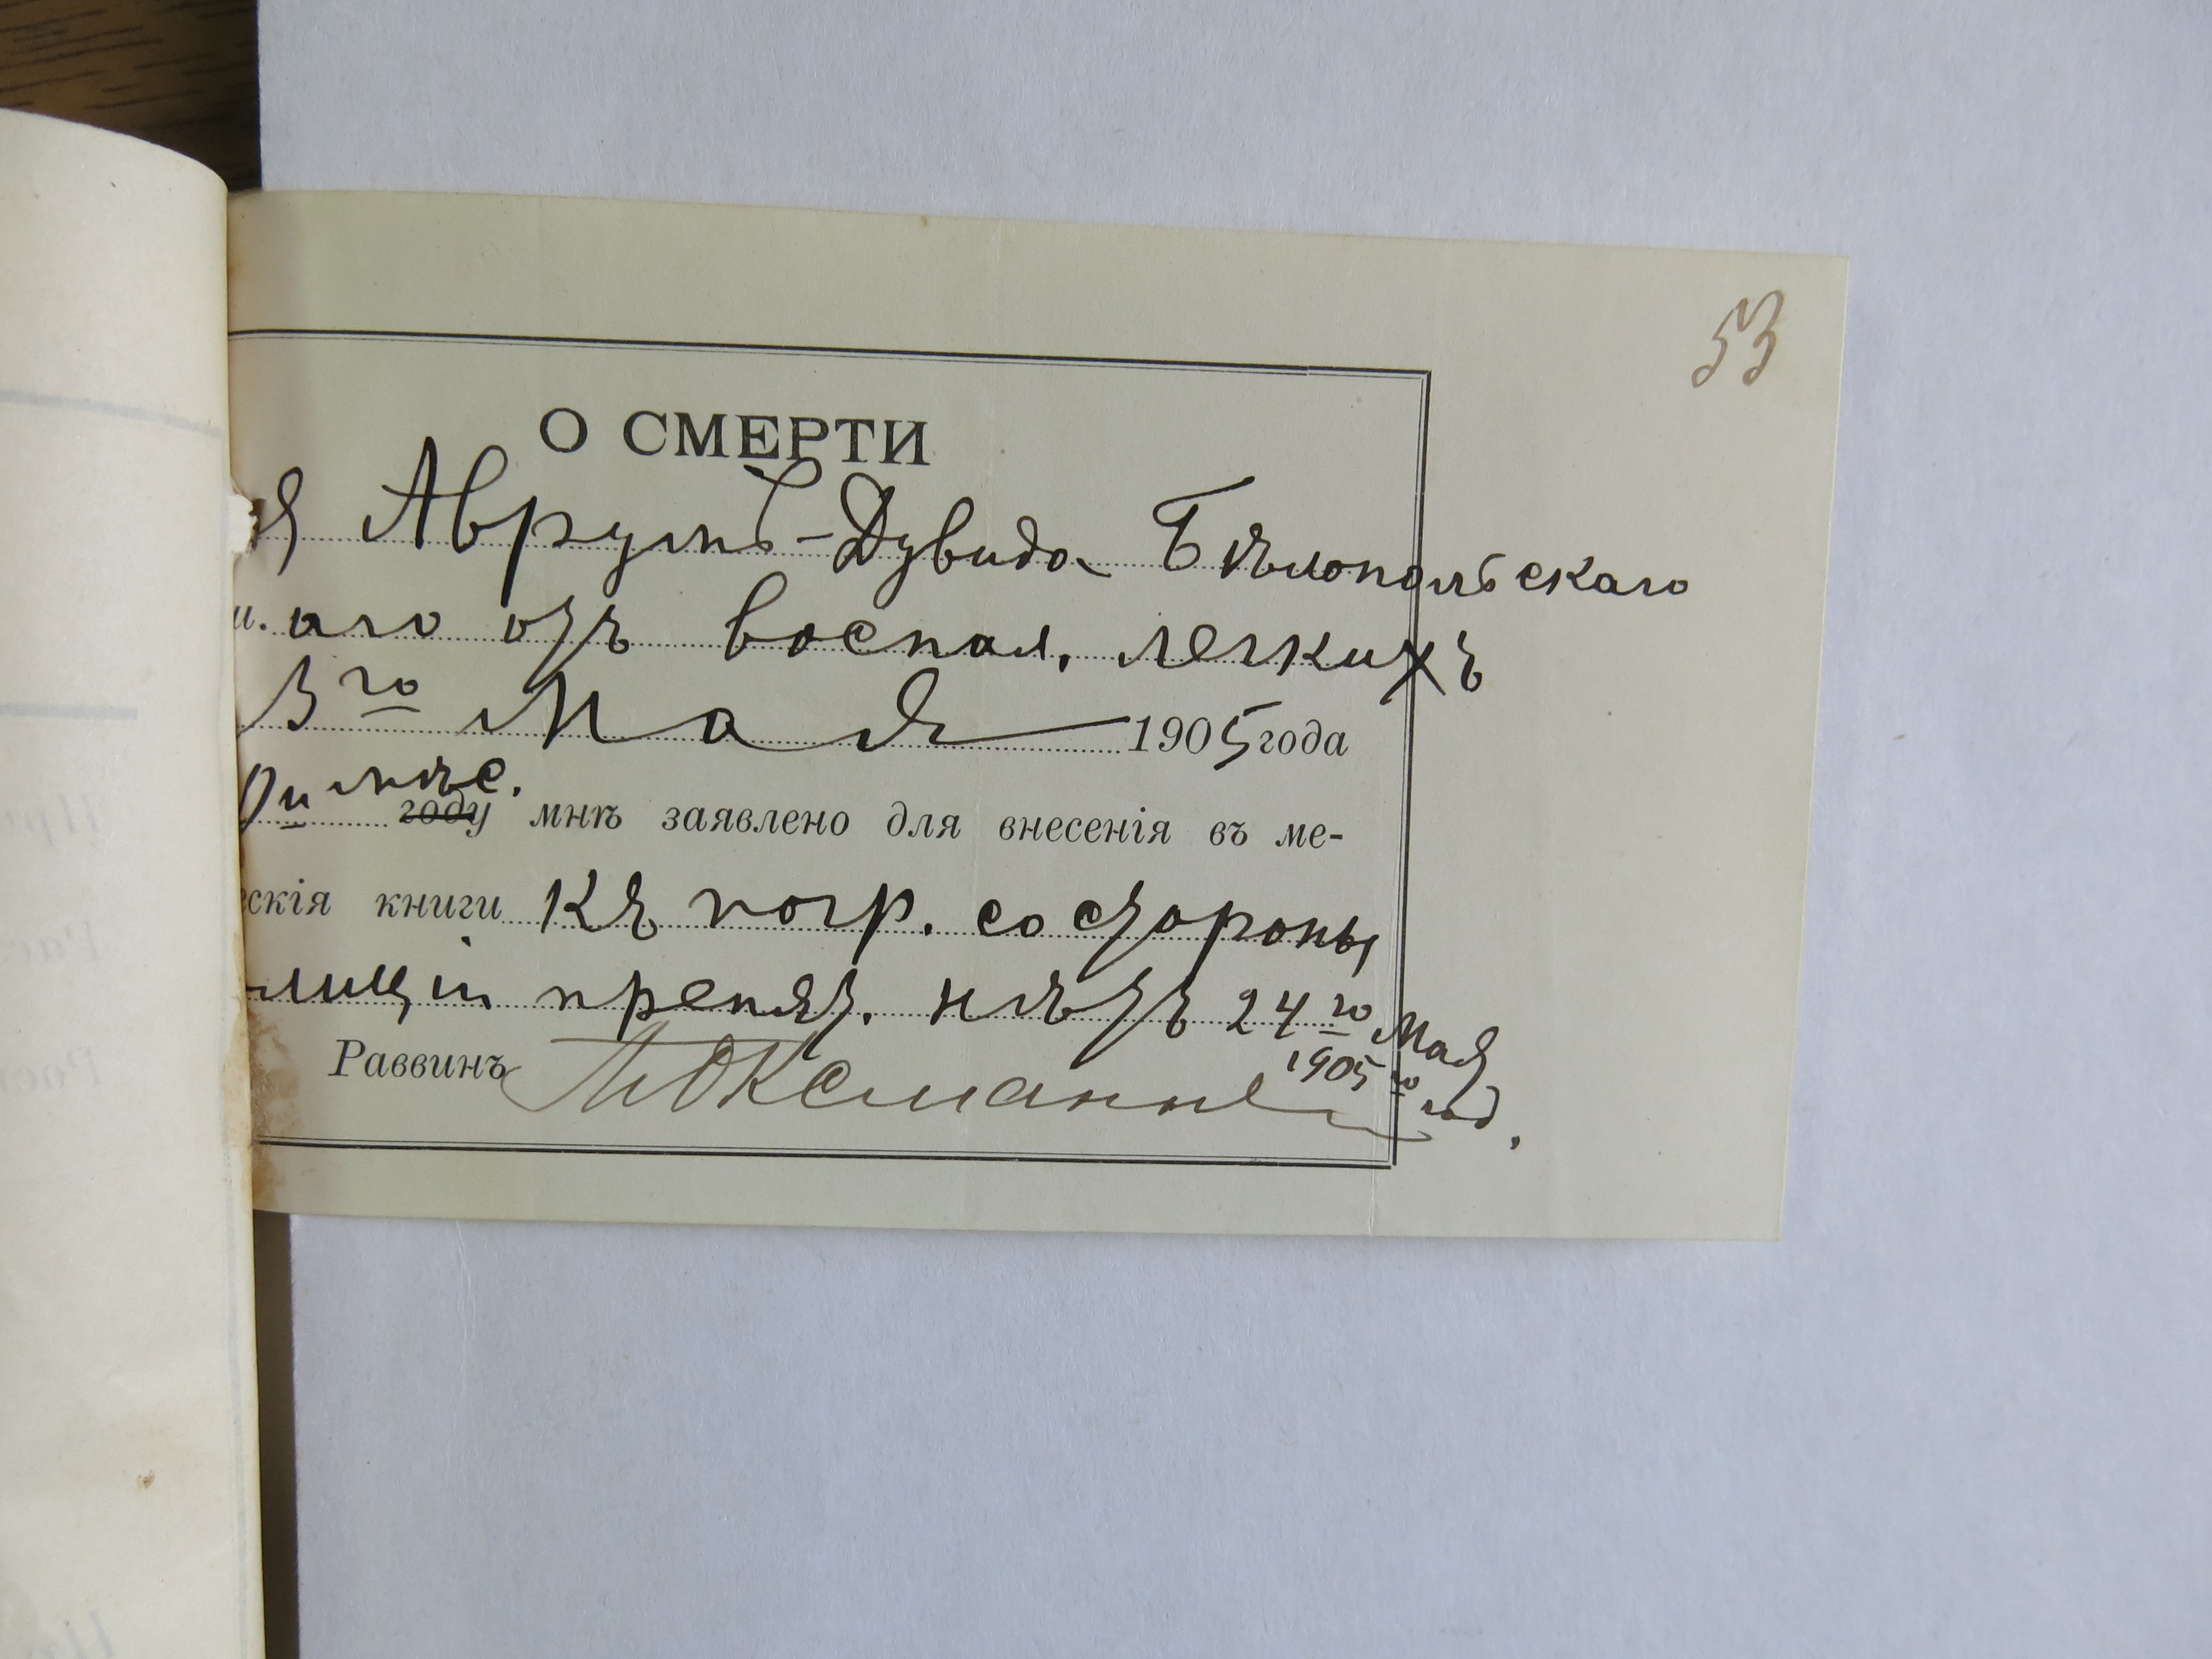 53
О СМЕРТИ
я Аврумъ-Дувида Бѣлопольскаго
аго отъ воспал. легкихъ
3го Мая 1905 года
0и мѣс.
году мнѣ заявлено для внесенія въ ме-
скія книги Къ погр. со стороны
лищіи препят. нѣтъ 24го Мая
Раввинъ 1905го год.